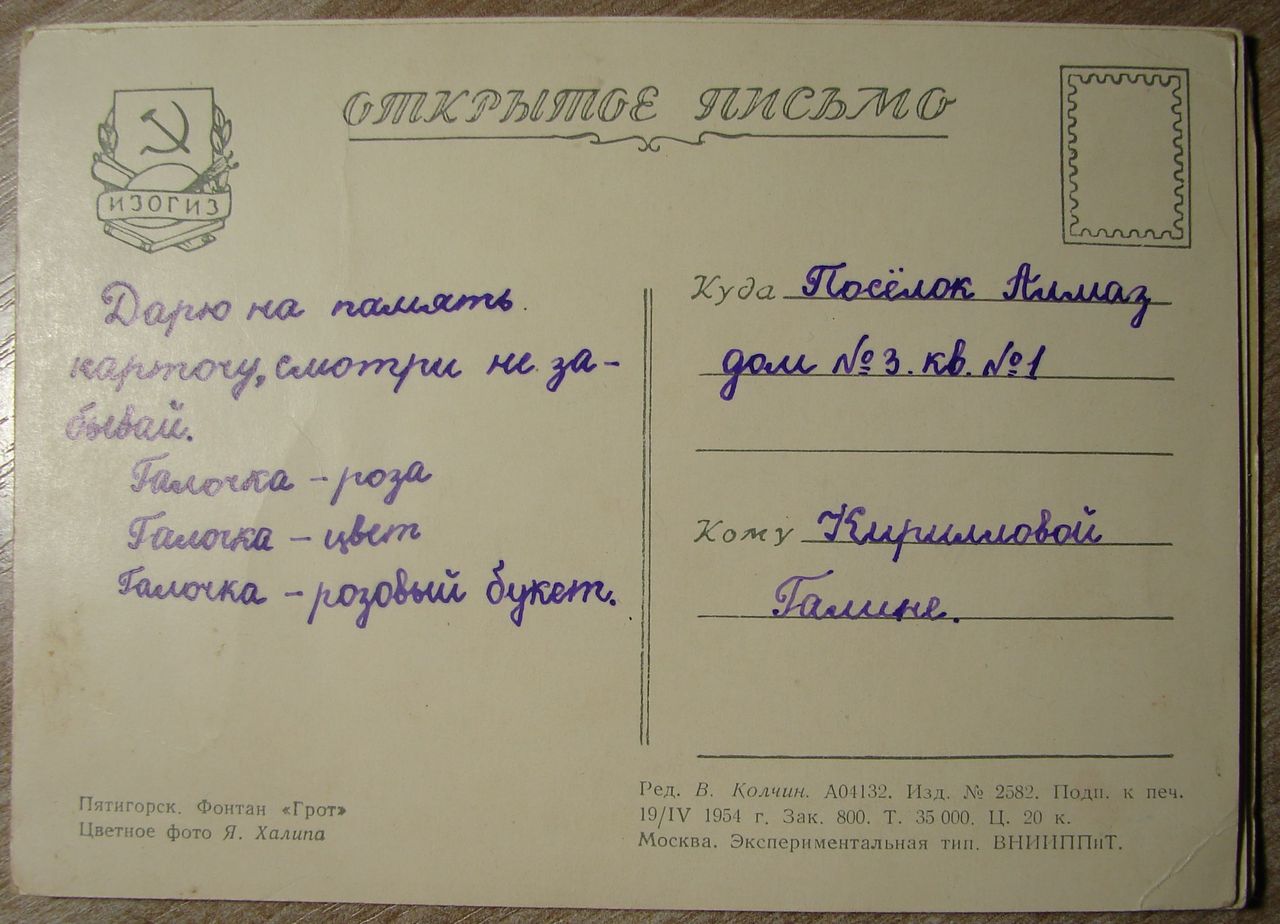 ОТКРЫТОЕ ПИСЬМО
ИЗОГИЗ
Дарю на память
карточу, смотри не за-
бывай.
Галочка – роза
Галочка – цвет
Галочка – розовый букет.
Куда Посёлок Алмаз
дом № 3. кв. № 1
Кому Кирилловой
Галине.
Пятигорск. Фонтан «Грот»
Цветное фото Я. Халипа
Ред. В. Колчин. А04132. Изд. № 2582. Подп. к печ.
19/IV 1954 г. Зак. 800. Т. 35 000. Ц. 20 к.
Москва. Экспериментальная тип. ВНИИППиТ.